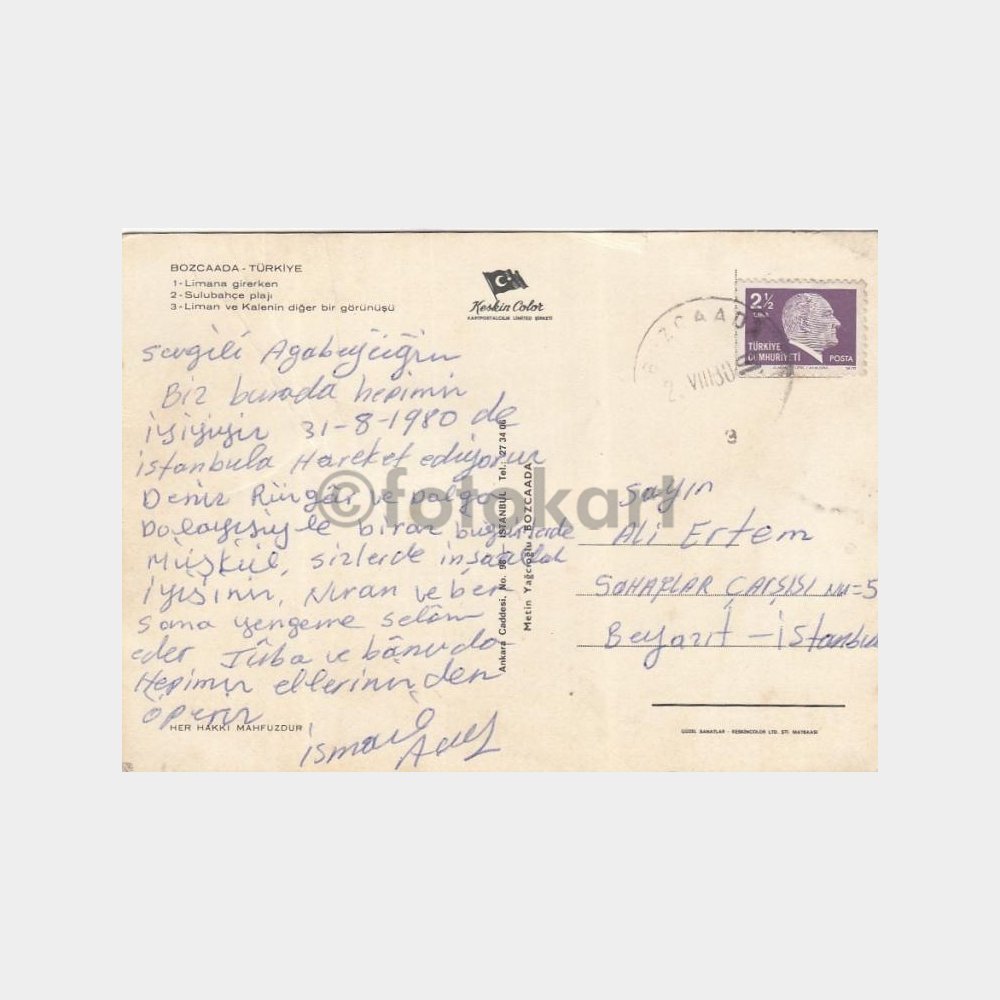 BOZCAADA - TÜRKİYE
1-Limana girerken
2-Sulubahçe plajı
3-Liman ve Kalenin diğer bir görünüşü
Keskin Color
KARTPOSTALCILIK LİMİTED ŞİRKETİ
2½
LİRA
TÜRKİYE
CUMHURİYETİ
POSTA
Sevgili Agabeyciğim
Biz burada hepimiz
iyiyiz 31-8-1980 de
istanbula Hareket ediyoruz
Deniz Rüzgâr ve dalga
Dolayısıyle biraz bugünlerde
Müşkül, sizlerde inşaallah
iyisiniz, Nuran ve ben
sana yengeme selâm
eder Tûba ve bânu da
Hepimiz ellerinizden
öperiz
HER HAKKI MAHFUZDUR
ismail
Ankara Caddesi. No. 98 - İSTANBUL Tel.: 27 34 06
Metin Yağcıoğlu BOZCAADA
©fotokart
Sayın
Ali Ertem
SAHAFLAR ÇARŞISI No=5
Beyazıt - istanbul
GÜZEL SANATLAR - KESKİNCOLOR LTD. ŞTİ. MATBAASI